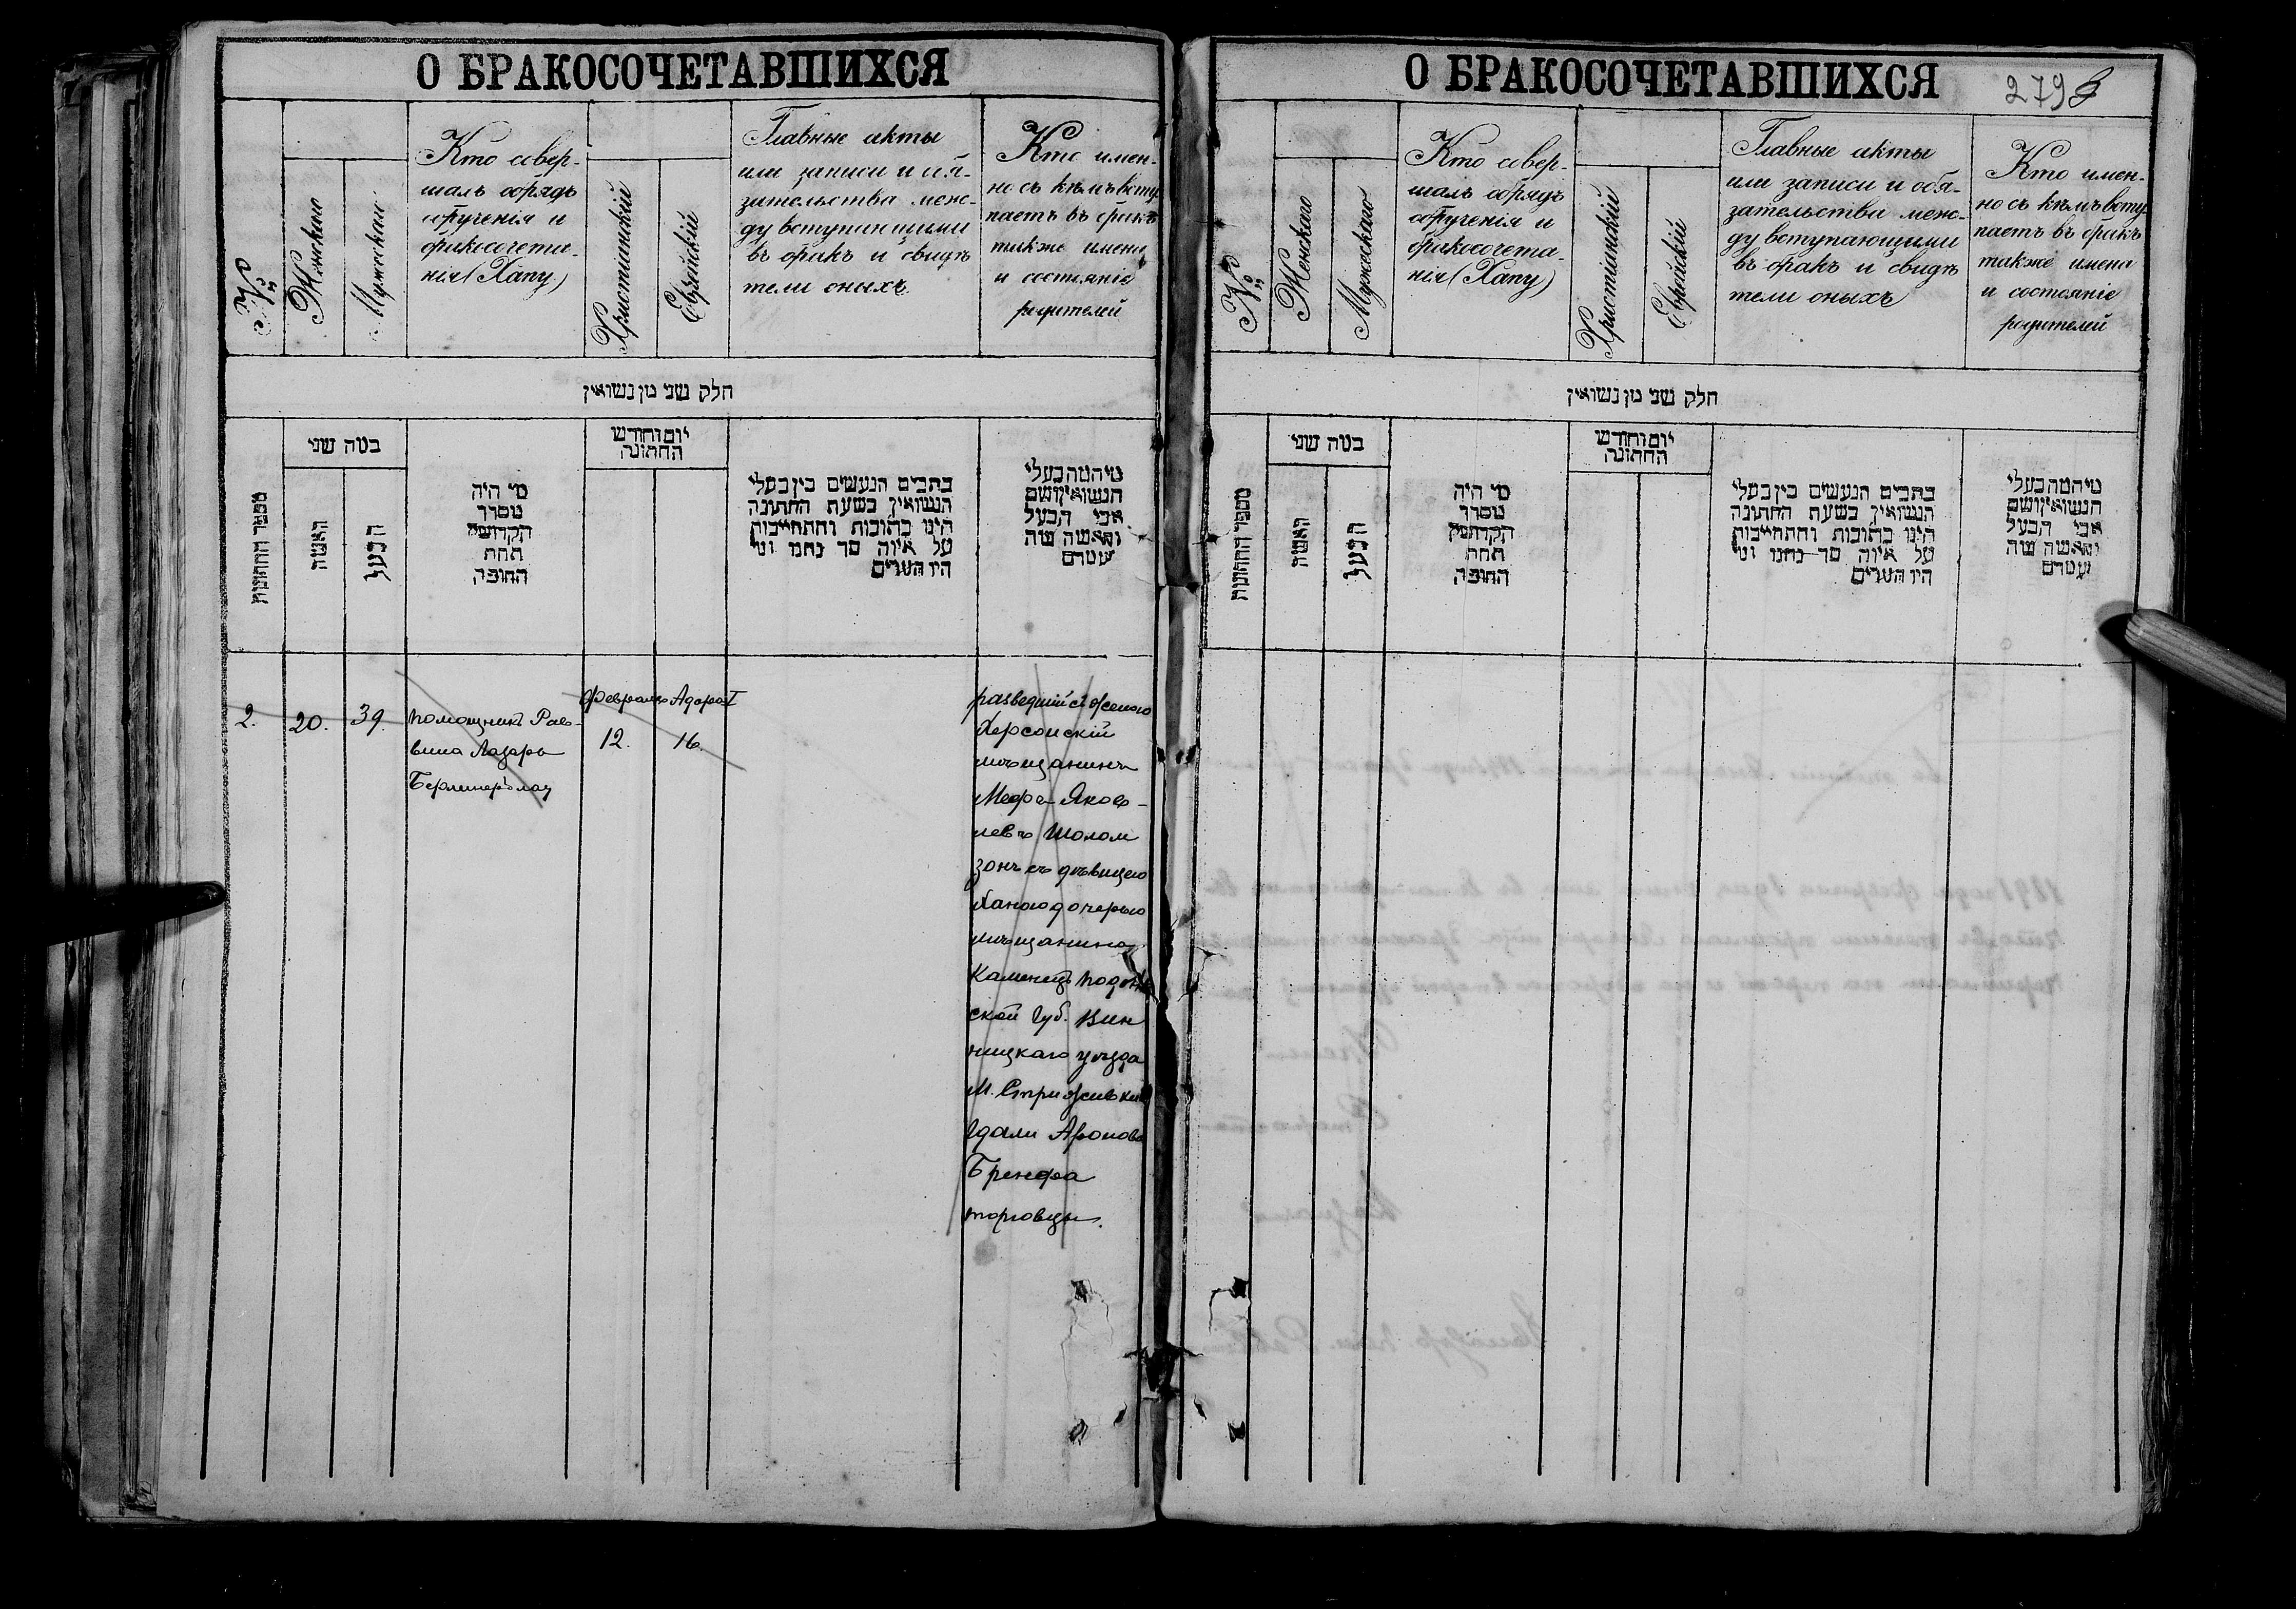 О БРАКОСОЧЕТАВШИХСЯ
№
Женскаго
Мужескаго
Кто совер-
шалъ обрядъ
обрученія и
бракосочета-
нія (Хапу)
Христіанскій
Еврейскій
Главные акты
или записи и обя-
зательства меж-
ду вступающими
въ бракъ и свидѣ
тели оныхъ
Кто имен-
но съ кѣмъ всту
паетъ въ бракъ
также имена
и состояніе
родителей
חלק שני מן נשואין
מספר החתונות
כמה שני
האשה
הבעל
מי היה
מסדר
הקדושין
תחת
החופה
יום וחודש
החתונה
כתבים הנעשים בין בעלי
הנשואין בשעת החתונה
היינו כתובות והתחייבות
על איזה סך
היו העדים
אבי הבעל
2.
20.
39.
помощникъ Рав-
вина Лазарь
Февраля
12.
Адара I
16.
разведшійся съ женою
Херсонскій
мѣщанинъ
Яков-
левъ Шолом
зонъ съ дѣвицею
Ханою дочерью
мѣщанина
Каменецъ Подоль
ской Губ. Вин
ницкаго уѣзда
М. Стрижавки
Гдали Аронова
торговцы.
О БРАКОСОЧЕТАВШИХСЯ
279
№
Женскаго
Мужескаго
Кто совер-
шалъ обрядъ
обрученія и
бракосочета-
нія (Хапу)
Христіанскій
Еврейскій
Главные акты
или записи и обя-
зательства меж-
ду вступающими
въ бракъ и свидѣ
тели оныхъ
Кто имен-
но съ кѣмъ всту
паетъ въ бракъ
также имена
и состояніе
родителей
חלק שני מן נשואין
מספר החתונות
כמה שני
האשה
הבעל
מי היה
מסדר
הקדושין
תחת
החופה
יום וחודש
החתונה
כתבים הנעשים בין בעלי
הנשואין בשעת החתונה
היינו כתובות והתחייבות
על איזה סך
היו העדים
אבי הבעל